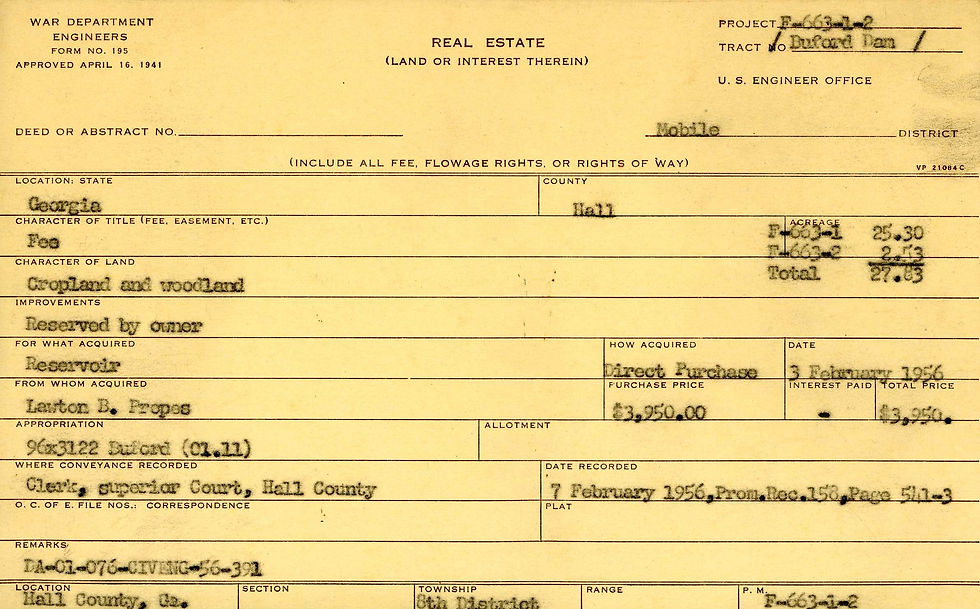 WAR DEPARTMENT
ENGINEERS
FORM NO. 195
APPROVED APRIL 16, 1941
REAL ESTATE
(LAND OR INTEREST THEREIN)
PROJECT F-663-1-2
TRACT NO Buford Dam
U. S. ENGINEER OFFICE
DEED OR ABSTRACT NO.
Mobile DISTRICT
(INCLUDE ALL FEE, FLOWAGE RIGHTS, OR RIGHTS OF WAY)
VP 21084C
LOCATION: STATE
Georgia
COUNTY
Hall
CHARACTER OF TITLE (FEE, EASEMENT, ETC.)
Fee
ACREAGE
F-663-1 25.30
F-663-2 2.53
Total 27.83
CHARACTER OF LAND
Cropland and woodland
IMPROVEMENTS
Reserved by owner
FOR WHAT ACQUIRED
Reservoir
HOW ACQUIRED
Direct Purchase
DATE
3 February 1956
FROM WHOM ACQUIRED
Lawton B. Propes
PURCHASE PRICE
$3,950.00
INTEREST PAID
-
TOTAL PRICE
$3,950.
APPROPRIATION
96x3122 Buford (01.11)
ALLOTMENT
WHERE CONVEYANCE RECORDED
Clerk, superior Court, Hall County
DATE RECORDED
7 February 1956,Prom.Rec.158,Page 541-3
O. C. OF E. FILE NOS.: CORRESPONDENCE
PLAT
REMARKS
DA-01-076-CIVENG-56-391
LOCATION
Hall County, Ga.
SECTION
TOWNSHIP
8th District
RANGE
P. M.
F-663-1-2